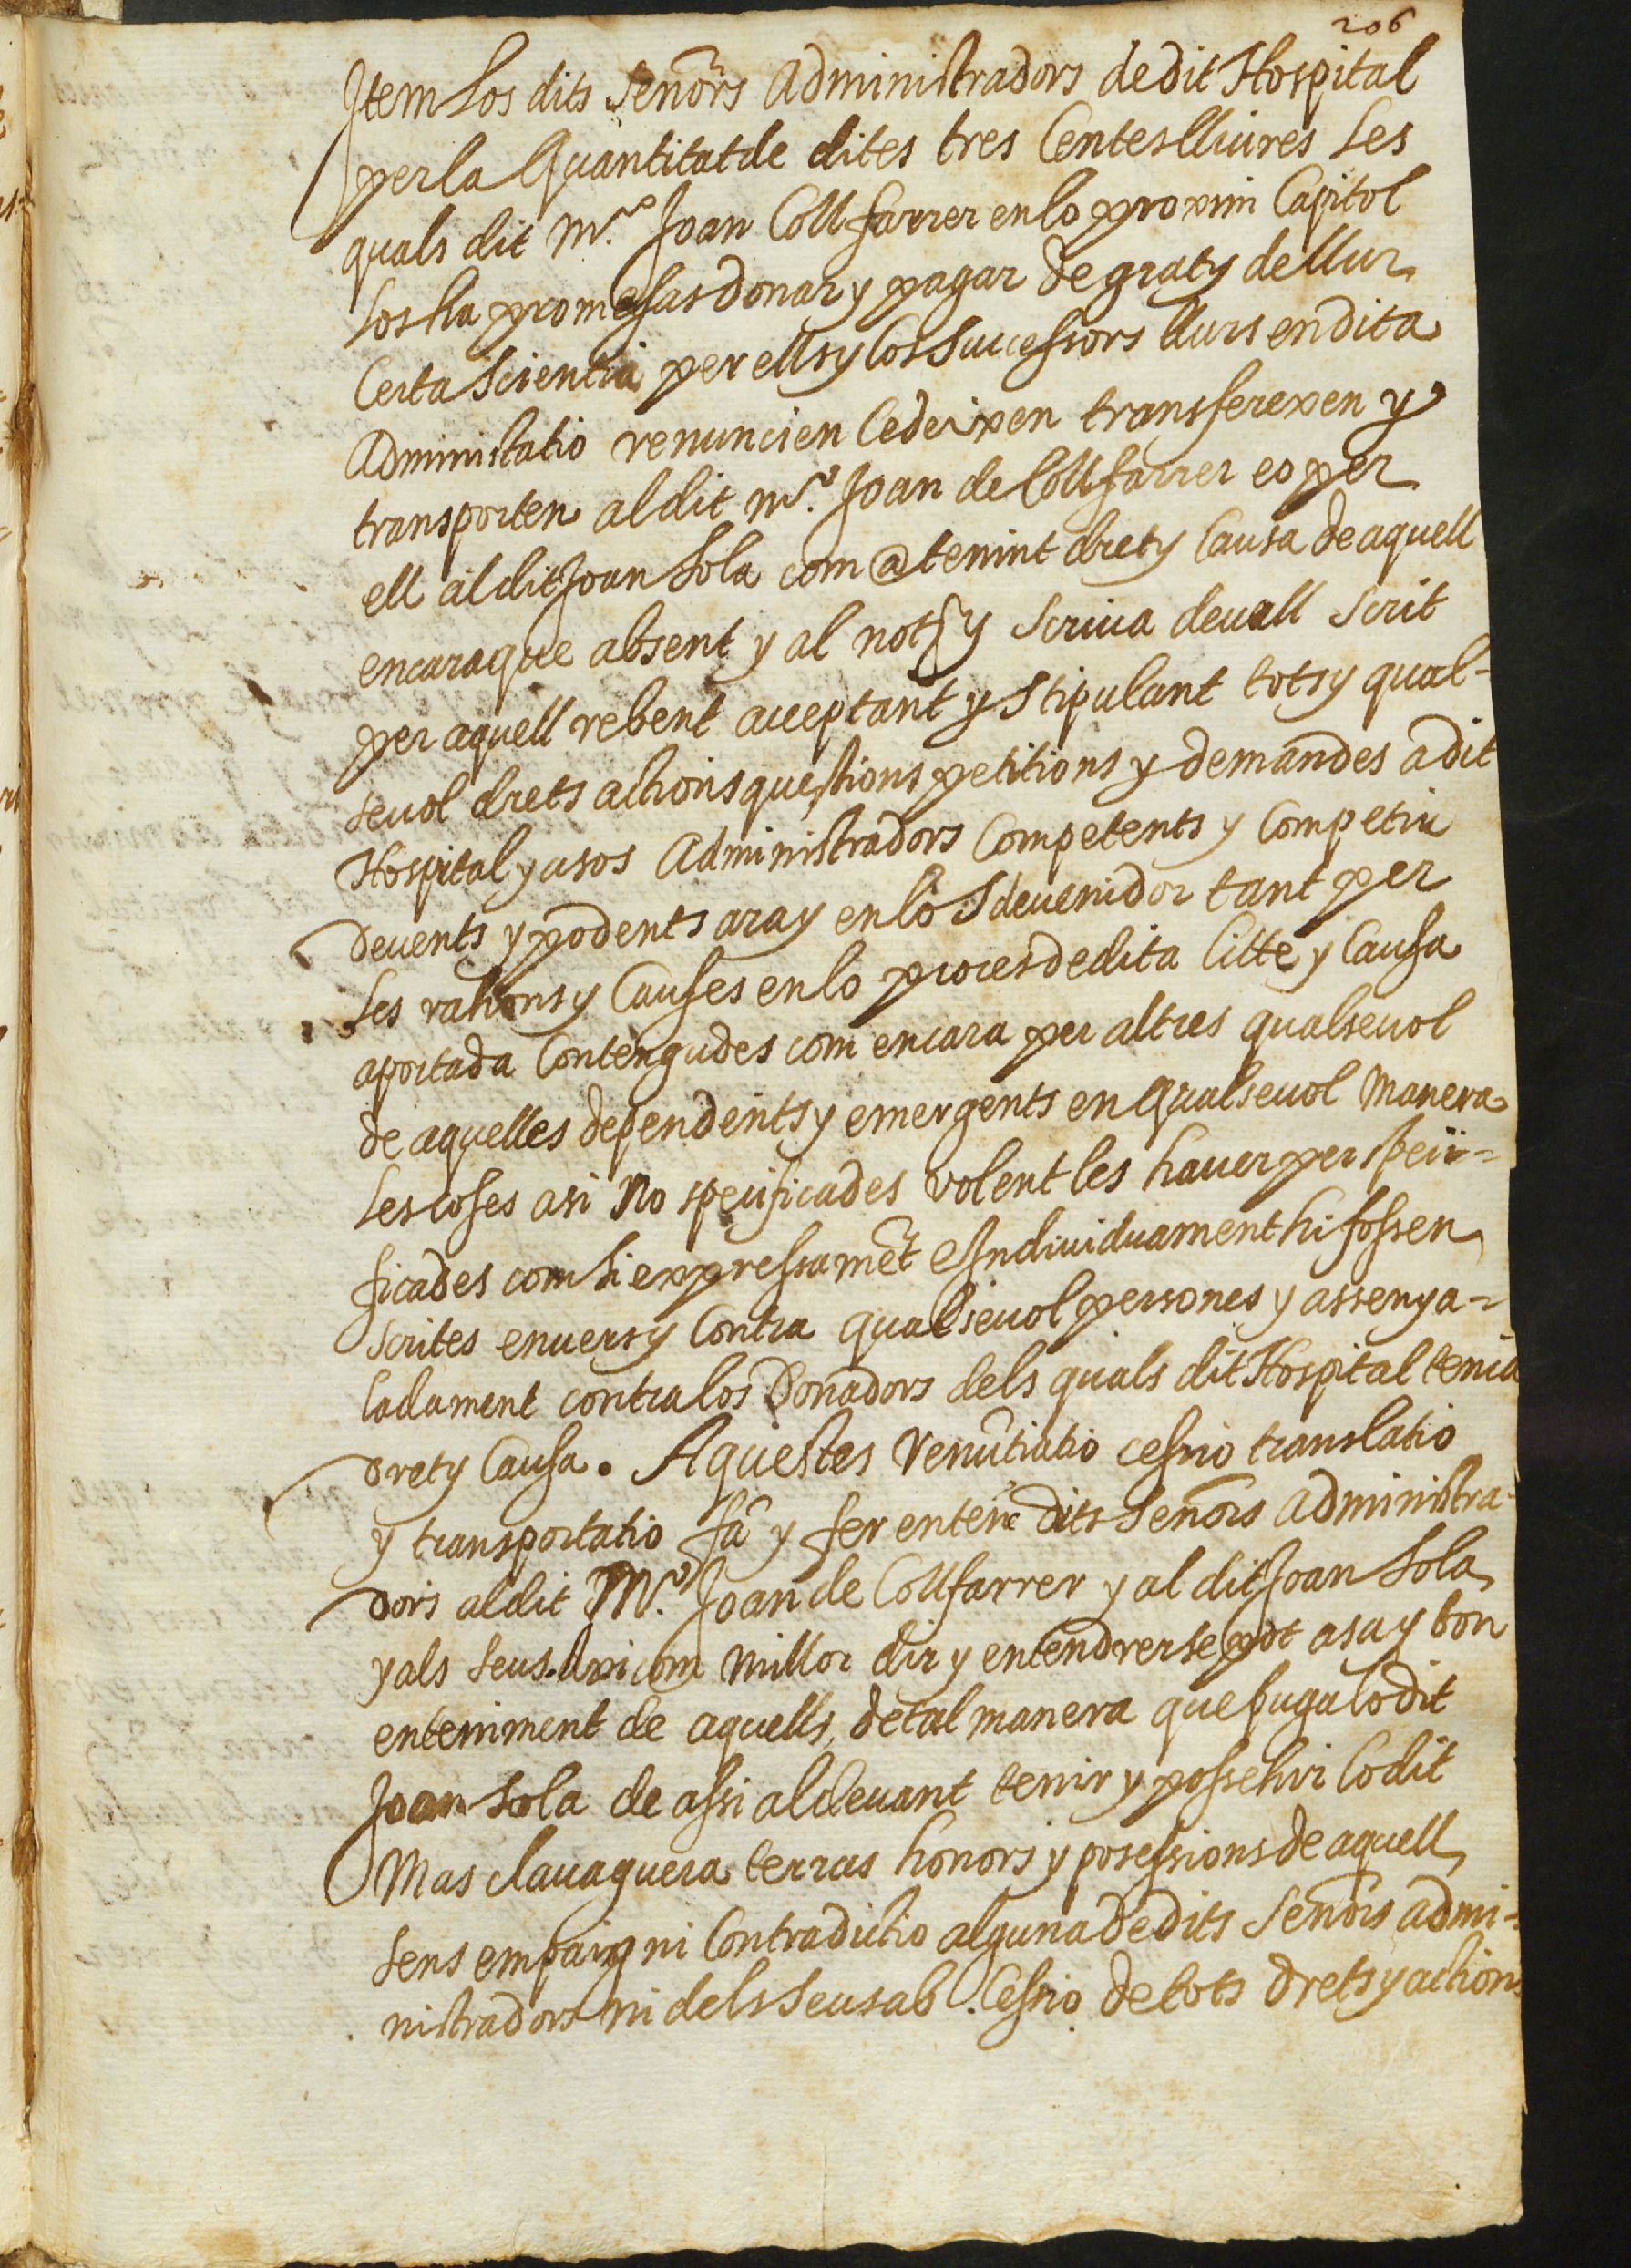 206
Item los dits señors Administradors de dit Hospital
per la Quantitat de dites tres Centes lliures les
quals dit Mº. Joan Coll farrer en lo proxim Capitol
los ha promesas donar y pagar de grat y de llur
Certa scientia per ells y los Successors llurs en dita
Administatio renuncien Cedeixen transferexen y
transporten al dit Mº. Joan de Collfarrer eo per
ell al dit Joan Sola com @ tenint dret y Causa de aquell
encaraque absent y al not y scriua deuall scrit
per aquell rebent acceptant y Stipulant tots y qual-
seuol drets actions questions petitions y demandes a dit
Hospital y asos Administradors Competents y Competiu
deuents y podents ara y en lo sdeuenidor tant per
les rahons y Causes en lo proces de dita litte y Causa
aportada Contengudes com encara per altres qualseuol
de aquelles dependents y emergents en Qualseuol Manera
les coses asi no specificades volent les hauer per speci-
ficades com si expressamēt e Individuament hi fossen
scrites enuers y Contra qualseuol persones y assenya-
ladament contra los Donadors dels quals dit Hospital tenia
dret y Causa. Aquestes Renūtiatio cessio translatio
y transportatio fā y fer entene dits Señors Administra-
dors al dit Mº. Joan de Collfarrer y al dit Joan Sola
y als seus. Axi com millor dir y entendrerse pot a sa y bon
enteniment de aquells, de tal manera que puga lo dit
Joan Sola de assi al deuant tenir y possehir lo dit
Mas clauaguera terras honors y possessions de aquell
sens empaig ni Contradictio alguna de dits Señors admi-
nistradors ni dels seus ab Cessio de tots drets y actions